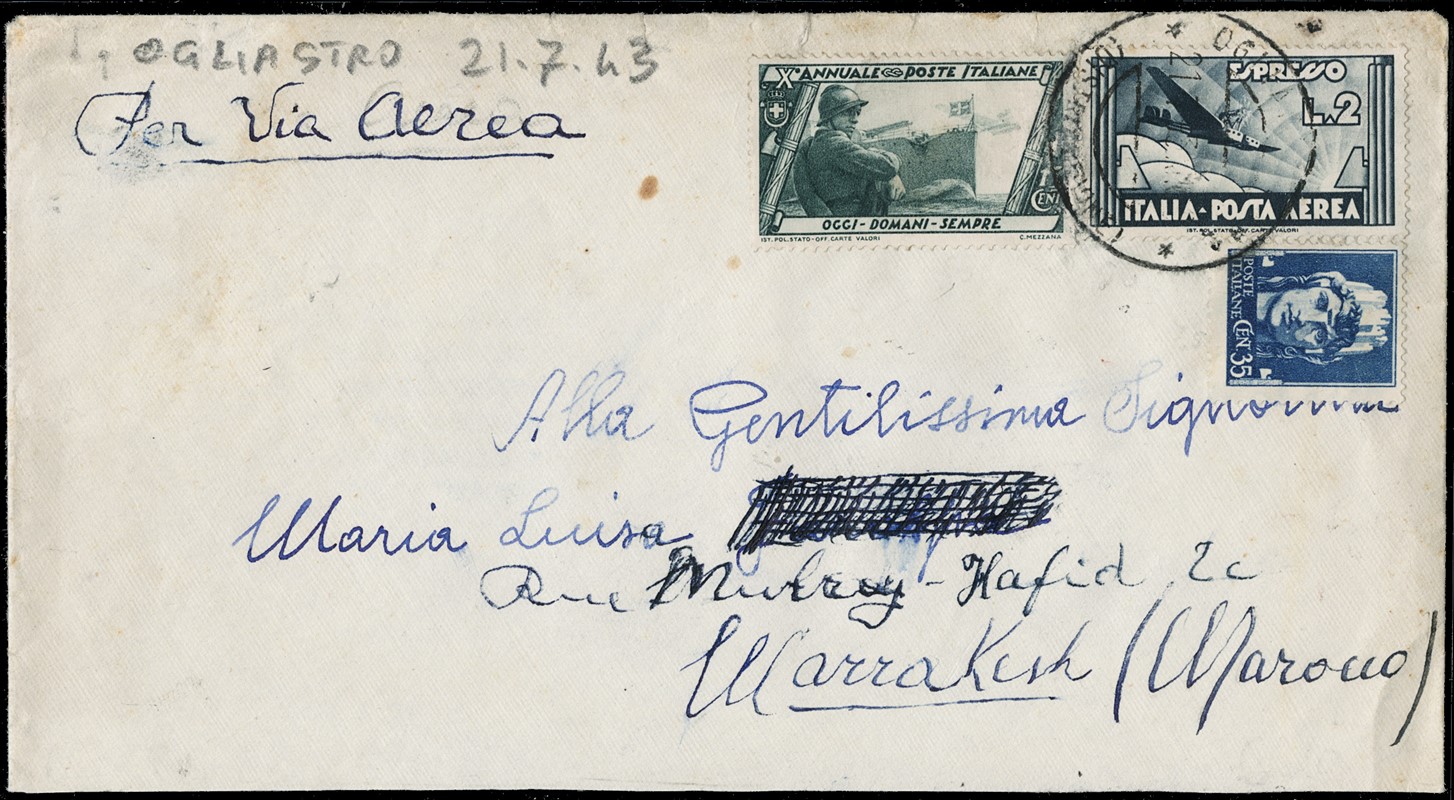 OGLIASTRO 21.7.43
Per Via Aerea
X° ANNUALE POSTE ITALIANE
CENT
OGGI - DOMANI - SEMPRE
IST. POL. STATO - OFF. CARTE VALORI C. MEZZANA
ESPRESSO
L.2
ITALIA - POSTA AEREA
IST. POL. STATO - OFF. CARTE VALORI
21
POSTE
ITALIANE
CENT. 35
Alla Gentilissima
Maria Luisa
Rue Mulrey - Hafid 2c
Marrakesh (Marocco)